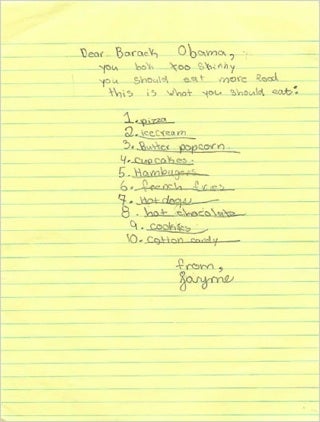 Dear Barack Obama,
you look too skinny
you should eat more food
this is what you should eat:
1. pizza
2. icecream
3. Butter popcorn
4. cupcakes
5. Hamburgers
6. french fries
7. hot dogs
8. hot chocolate
9. cookies
10. cotton candy
from,
Jayme